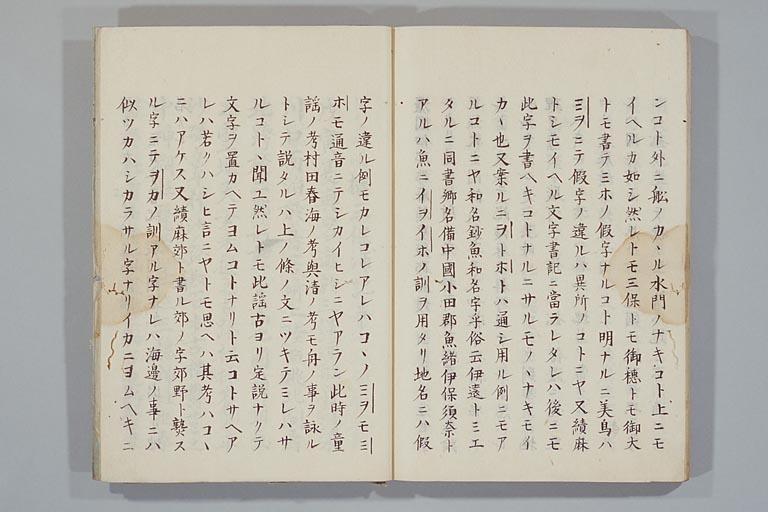 ンコト外ニ舩ノカヽル水門ノナキコト上ニモ
イヘルカ如シ然レトモ三保トモ御穂トモ御大
トモ書テミホノ假字ナルコト明ナルニ美鳥ハ
ミヲニテ假字ノ違ルハ異所ノコトニヤ又績麻
トシモイヘル文字書記ニ當ラレタレハ後ニモ
此字ヲ書ヘキコトナルニサルモノヽナキモイ
カヽ也又案ルニヲトホトハ通シ用ル例ニモア
ルコトニヤ和名鈔魚和名宇乎俗云伊遠トミエ
タルニ同書郷名備中國小田郡魚緒伊保須奈ト
アルハ魚ニイヲイホノ訓ヲ用タリ地名ニハ假
字ノ違ル例モカレコレアレハコヽノミヲモミ
ホモ通音ニテシカイヒシニヤアラン此時ノ童
謡ノ考村田春海ノ考與清ノ考モ舟ノ事ヲ詠ル
トシテ説タルハ上ノ條ノ文ニツキテミレハサ
ルコトヽ聞ユ然レトモ此謡古ヨリ定説ナクテ
文字ヲ置カヘテヨムコトナリト云コトサヘア
レハ若クハシヒ言ニヤトモ思ヘハ其考ハコヽ
ニハアケス又績麻郊ト書ル郊ノ字郊野ト熟ス
ル字ニテヲカノ訓アル字ナレハ海邊ノ事ニハ
似ツカハシカラサル字ナリイカニヨムヘキニ